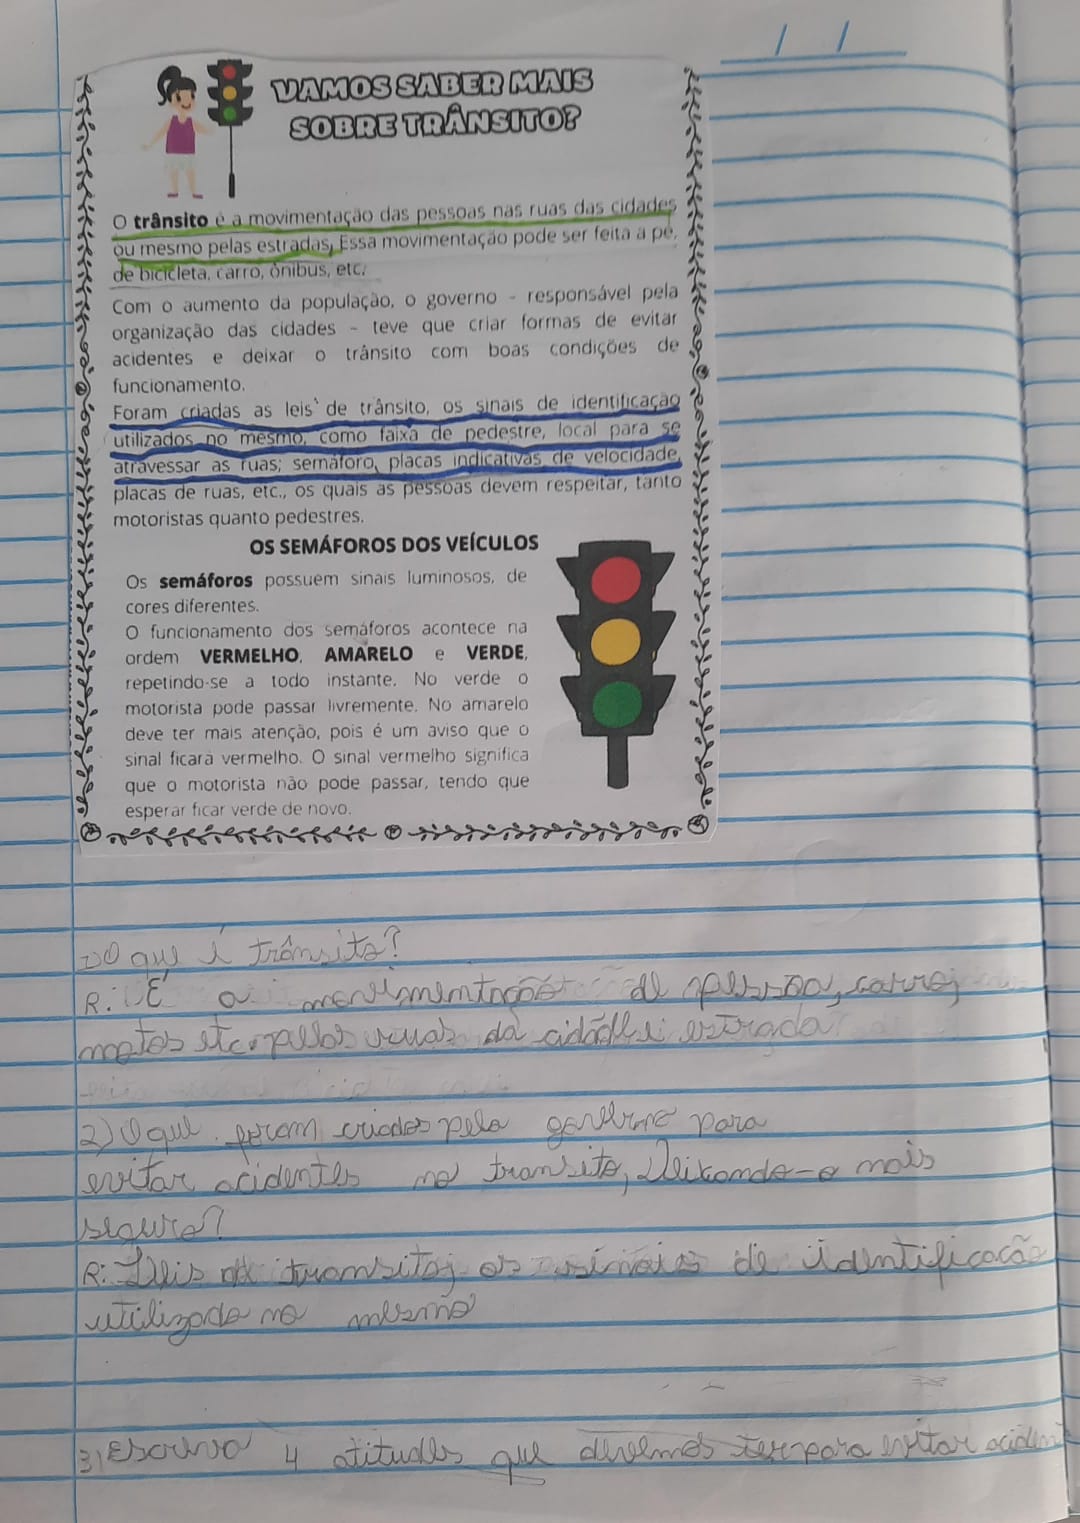 / /
VAMOS SABER MAIS
SOBRE TRÂNSITO?
O trânsito é a movimentação das pessoas nas ruas das cidades
ou mesmo pelas estradas. Essa movimentação pode ser feita a pé,
de bicicleta, carro, ônibus, etc.
Com o aumento da população, o governo - responsável pela
organização das cidades - teve que criar formas de evitar
acidentes e deixar o trânsito com boas condições de
funcionamento.
Foram criadas as leis de trânsito, os sinais de identificação
utilizados no mesmo, como faixa de pedestre, local para se
atravessar as ruas; semáforo, placas indicativas de velocidade,
placas de ruas, etc., os quais as pessoas devem respeitar, tanto
motoristas quanto pedestres.
OS SEMÁFOROS DOS VEÍCULOS
Os semáforos possuem sinais luminosos, de
cores diferentes.
O funcionamento dos semáforos acontece na
ordem VERMELHO, AMARELO e VERDE,
repetindo-se a todo instante. No verde o
motorista pode passar livremente. No amarelo
deve ter mais atenção, pois é um aviso que o
sinal ficará vermelho. O sinal vermelho significa
que o motorista não pode passar, tendo que
esperar ficar verde de novo.
1) O que é trânsito?
R: É a movimentação de pessoa, carro,
motos etc. pelas ruas da cidade e estrada
2) O que foram criados pelo governo para
evitar acidentes no transito, Deixando-o mais
seguro?
R: Leis de transito, os sinais de identificacão
utilizado no mesmo
3) Escreva 4 atitudes que devemos ter para evitar aciden